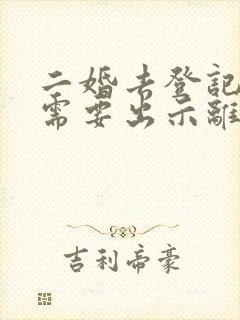 二婚去登記
需要出示離
吉利帝豪